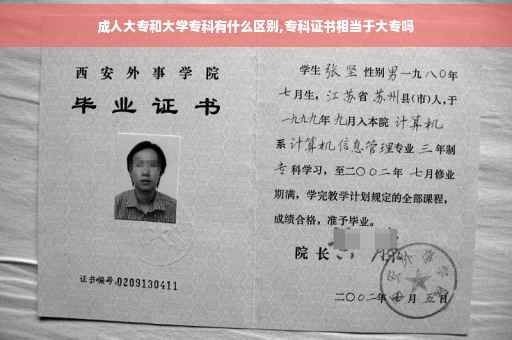 成人大专和大学专科有什么区别,专科证书相当于大专吗
西安外事学院
毕业证书
证书编号:0209130411
学生 张坚 性别 男 一九八〇年
七月生，江苏省 苏州县(市)人,于
一九九九年 九月入本院 计算机
系 计算机信息管理专业 三 年制
专 科学习，至二〇〇二年 七月修业
期满，学完教学计划规定的全部课程，
成绩合格，准予毕业。
院长
二〇〇二年 月 五日